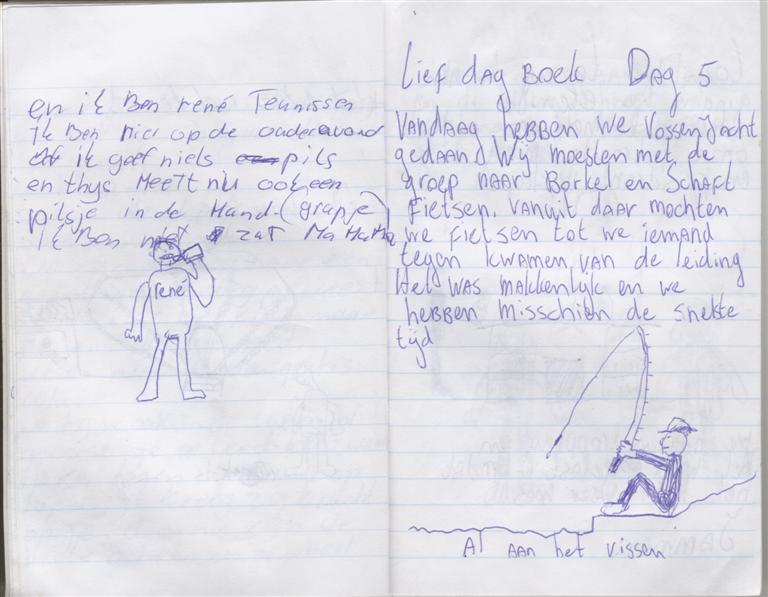 en ik Ben rené Teunissen
Ik Ben hier op de ouderavond
ik goef niels pils
en thys Heeft nu ook een
pilsje in de Hand. (grapje)
Ik Ben niet zat Ha Ha Ha
rené
Lief dag Boek Dag 5
VANDAAG hebben we Vossenjacht
gedaand Wij moesten met de
groep naar Borkel en Schaft
Fietsen. Vanuit daar mochten
we Fietsen tot we iemand
tegen kwamen van de leiding
Het was makkenlijk en we
hebben misschien de snelste
tijd
Al aan het vissen